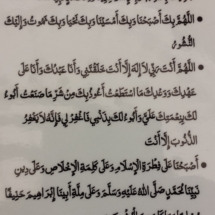 • اللَّهُمَّ بِكَ أَصْبَحْنَا وَبِكَ أَمْسَيْنَا وَبِكَ نَحْيَا وَبِكَ نَمُوتُ وَإِلَيْكَ
النُّشُورُ
• اللَّهُمَّ أَنْتَ رَبِّي لَا إِلَهَ إِلَّا أَنْتَ خَلَقْتَنِي وَأَنَا عَبْدُكَ وَأَنَا عَلَى
عَهْدِكَ وَوَعْدِكَ مَا اسْتَطَعْتُ أَعُوذُ بِكَ مِنْ شَرِّ مَا صَنَعْتُ أَبُوءُ
لَكَ بِنِعْمَتِكَ عَلَيَّ وَأَبُوءُ لَكَ بِذَنْبِي فَاغْفِرْ لِي فَإِنَّهُ لَا يَغْفِرُ
الذُّنُوبَ إِلَّا أَنْتَ
• أَصْبَحْنَا عَلَى فِطْرَةِ الْإِسْلَامِ وَعَلَى كَلِمَةِ الْإِخْلَاصِ وَعَلَى دِينِ
نَبِيِّنَا مُحَمَّدٍ صَلَّى اللهُ عَلَيْهِ وَسَلَّمَ وَعَلَى مِلَّةِ أَبِينَا إِبْرَاهِيمَ حَنِيفًا